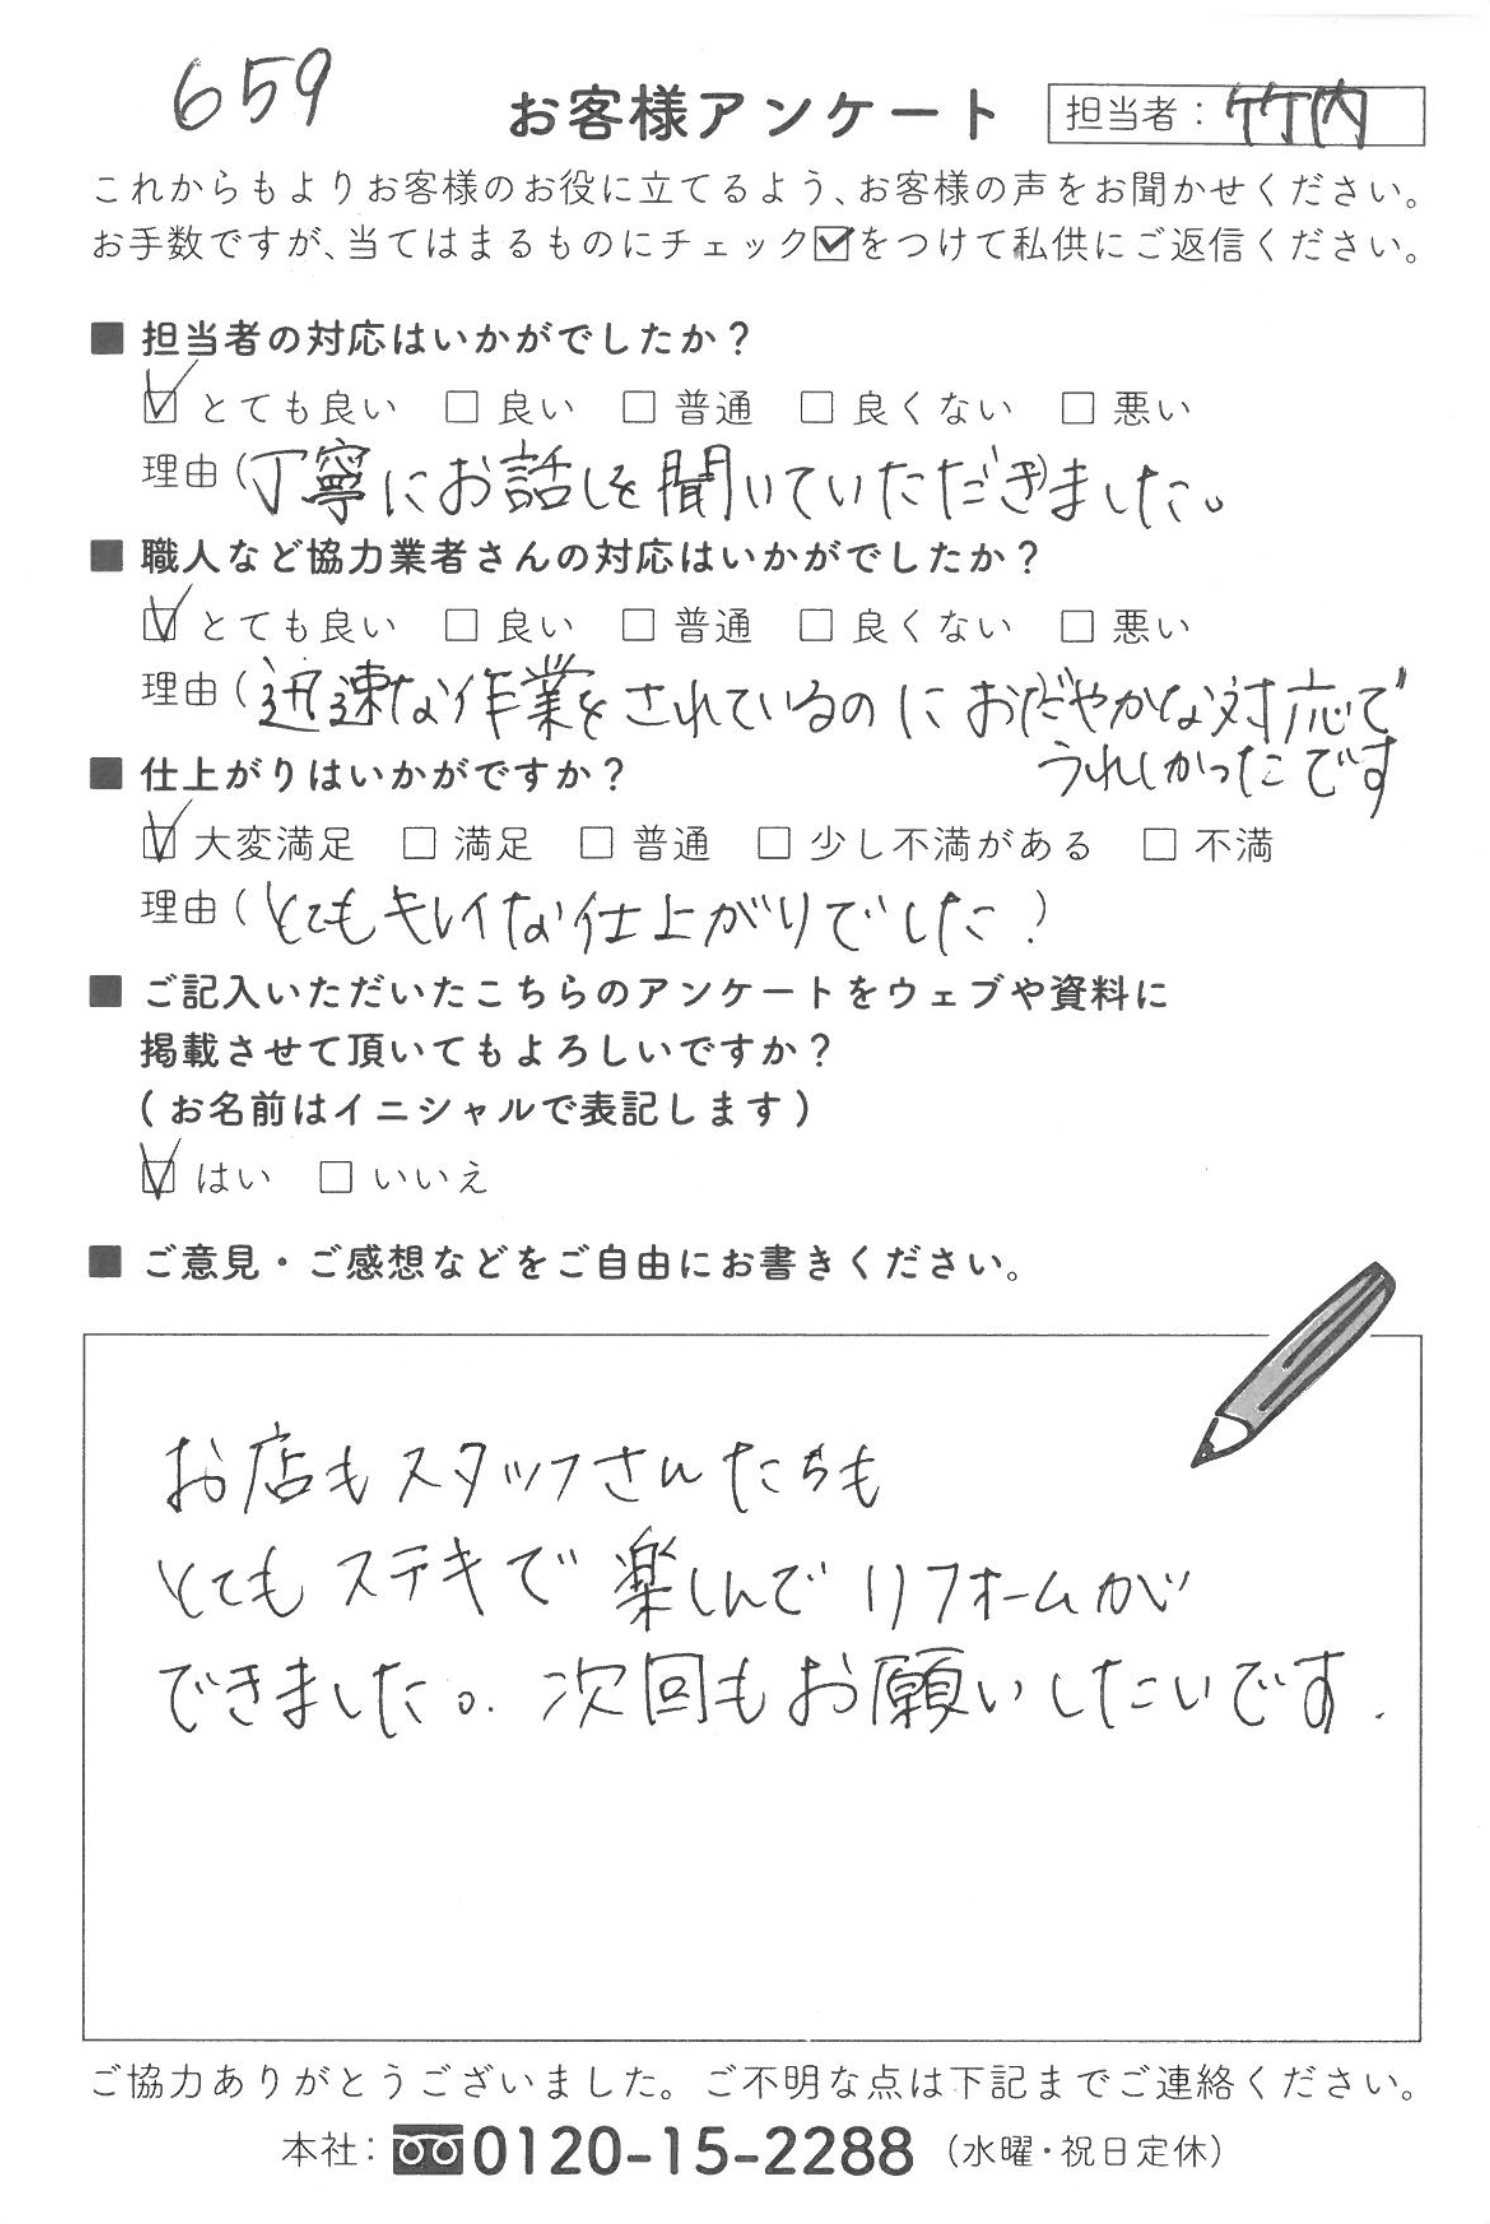 659
お客様アンケート 担当者：竹内
これからもよりお客様のお役に立てるよう、お客様の声をお聞かせください。
お手数ですが、当てはまるものにチェック☑をつけて私供にご返信ください。
■ 担当者の対応はいかがでしたか？
☑ とても良い □ 良い □ 普通 □ 良くない □ 悪い
理由（丁寧にお話しを聞いていただきました。
■ 職人など協力業者さんの対応はいかがでしたか？
☑ とても良い □ 良い □ 普通 □ 良くない □ 悪い
理由（迅速な作業をされているのにおだやかな対応で
うれしかったです
■ 仕上がりはいかがですか？
☑ 大変満足 □ 満足 □ 普通 □ 少し不満がある □ 不満
理由（とてもキレイな仕上がりでした！）
■ ご記入いただいたこちらのアンケートをウェブや資料に
掲載させて頂いてもよろしいですか？
（お名前はイニシャルで表記します）
☑ はい □ いいえ
■ ご意見・ご感想などをご自由にお書きください。
お店もスタッフさんたちも
とてもステキで楽しんでリフォームが
できました。次回もお願いしたいです.
ご協力ありがとうございました。ご不明な点は下記までご連絡ください。
本社：0120-15-2288（水曜・祝日定休）